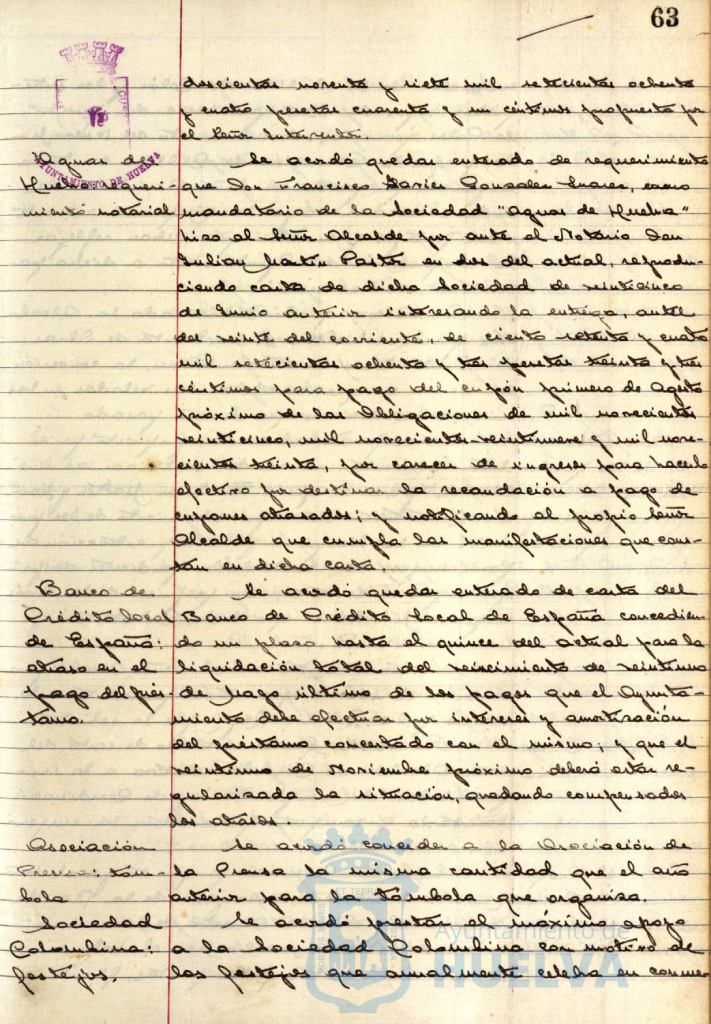 63
doscientas noventa y siete mil setecientas ochenta
y cuatro pesetas cuarenta y un céntimos propuesta por
el Señor Interventor.
AYUNTAMIENTO DE HUELVA
Aguas de Se acordó quedar enterado de requerimiento
Huelva requeri- que Don Francisco Javier Gonzalez Suarez, como
miento notarial mandatario de la Sociedad "Aguas de Huelva"
hizo al Señor Alcalde por ante el Notario Don
Julian Martin Pastor en dos del actual, reprodu-
ciendo carta de dicha Sociedad de veinticinco
de Junio anterior interesando la entrega, antes
del veinte del corriente, de ciento setenta y cuatro
mil setecientas ochenta y tres pesetas treinta y tres
céntimos para pago del cupón primero de Agosto
próximo de las Obligaciones de mil novecientos
veinticinco, mil novecientos veintinueve y mil nove-
cientos treinta, por carecer de ingresos para hacerlo
efectivo por destinar la recaudación a pago de
cupones atrasados; y notificando al propio Señor
Alcalde que cumpla las manifestaciones que cons-
tan en dicha carta.
Banco de Se acordó quedar enterado de carta del
Crédito Local Banco de Crédito Local de España concedien-
de España: do un plazo hasta el quince del actual para la
atraso en el liquidación total del vencimiento de veintiuno
pago del prés- de Mayo último de los pagos que el Ayunta-
tamo. miento debe efectuar por intereses y amortización
del préstamo concertado con el mismo; y que el
veintiuno de Noviembre próximo deberá estar re-
gularizada la situación, quedando compensados
los atrasos.
Asociación Se acordó conceder a la Asociación de
Prensa: tom- la Prensa la misma cantidad que el año
bola anterior para la tómbola que organiza.
Sociedad Se acordó prestar el máximo apoyo
Colombina: a la Sociedad Colombina con motivo de
festejos. los festejos que anualmente celebra en conme-
Ayuntamiento de
HUELVA